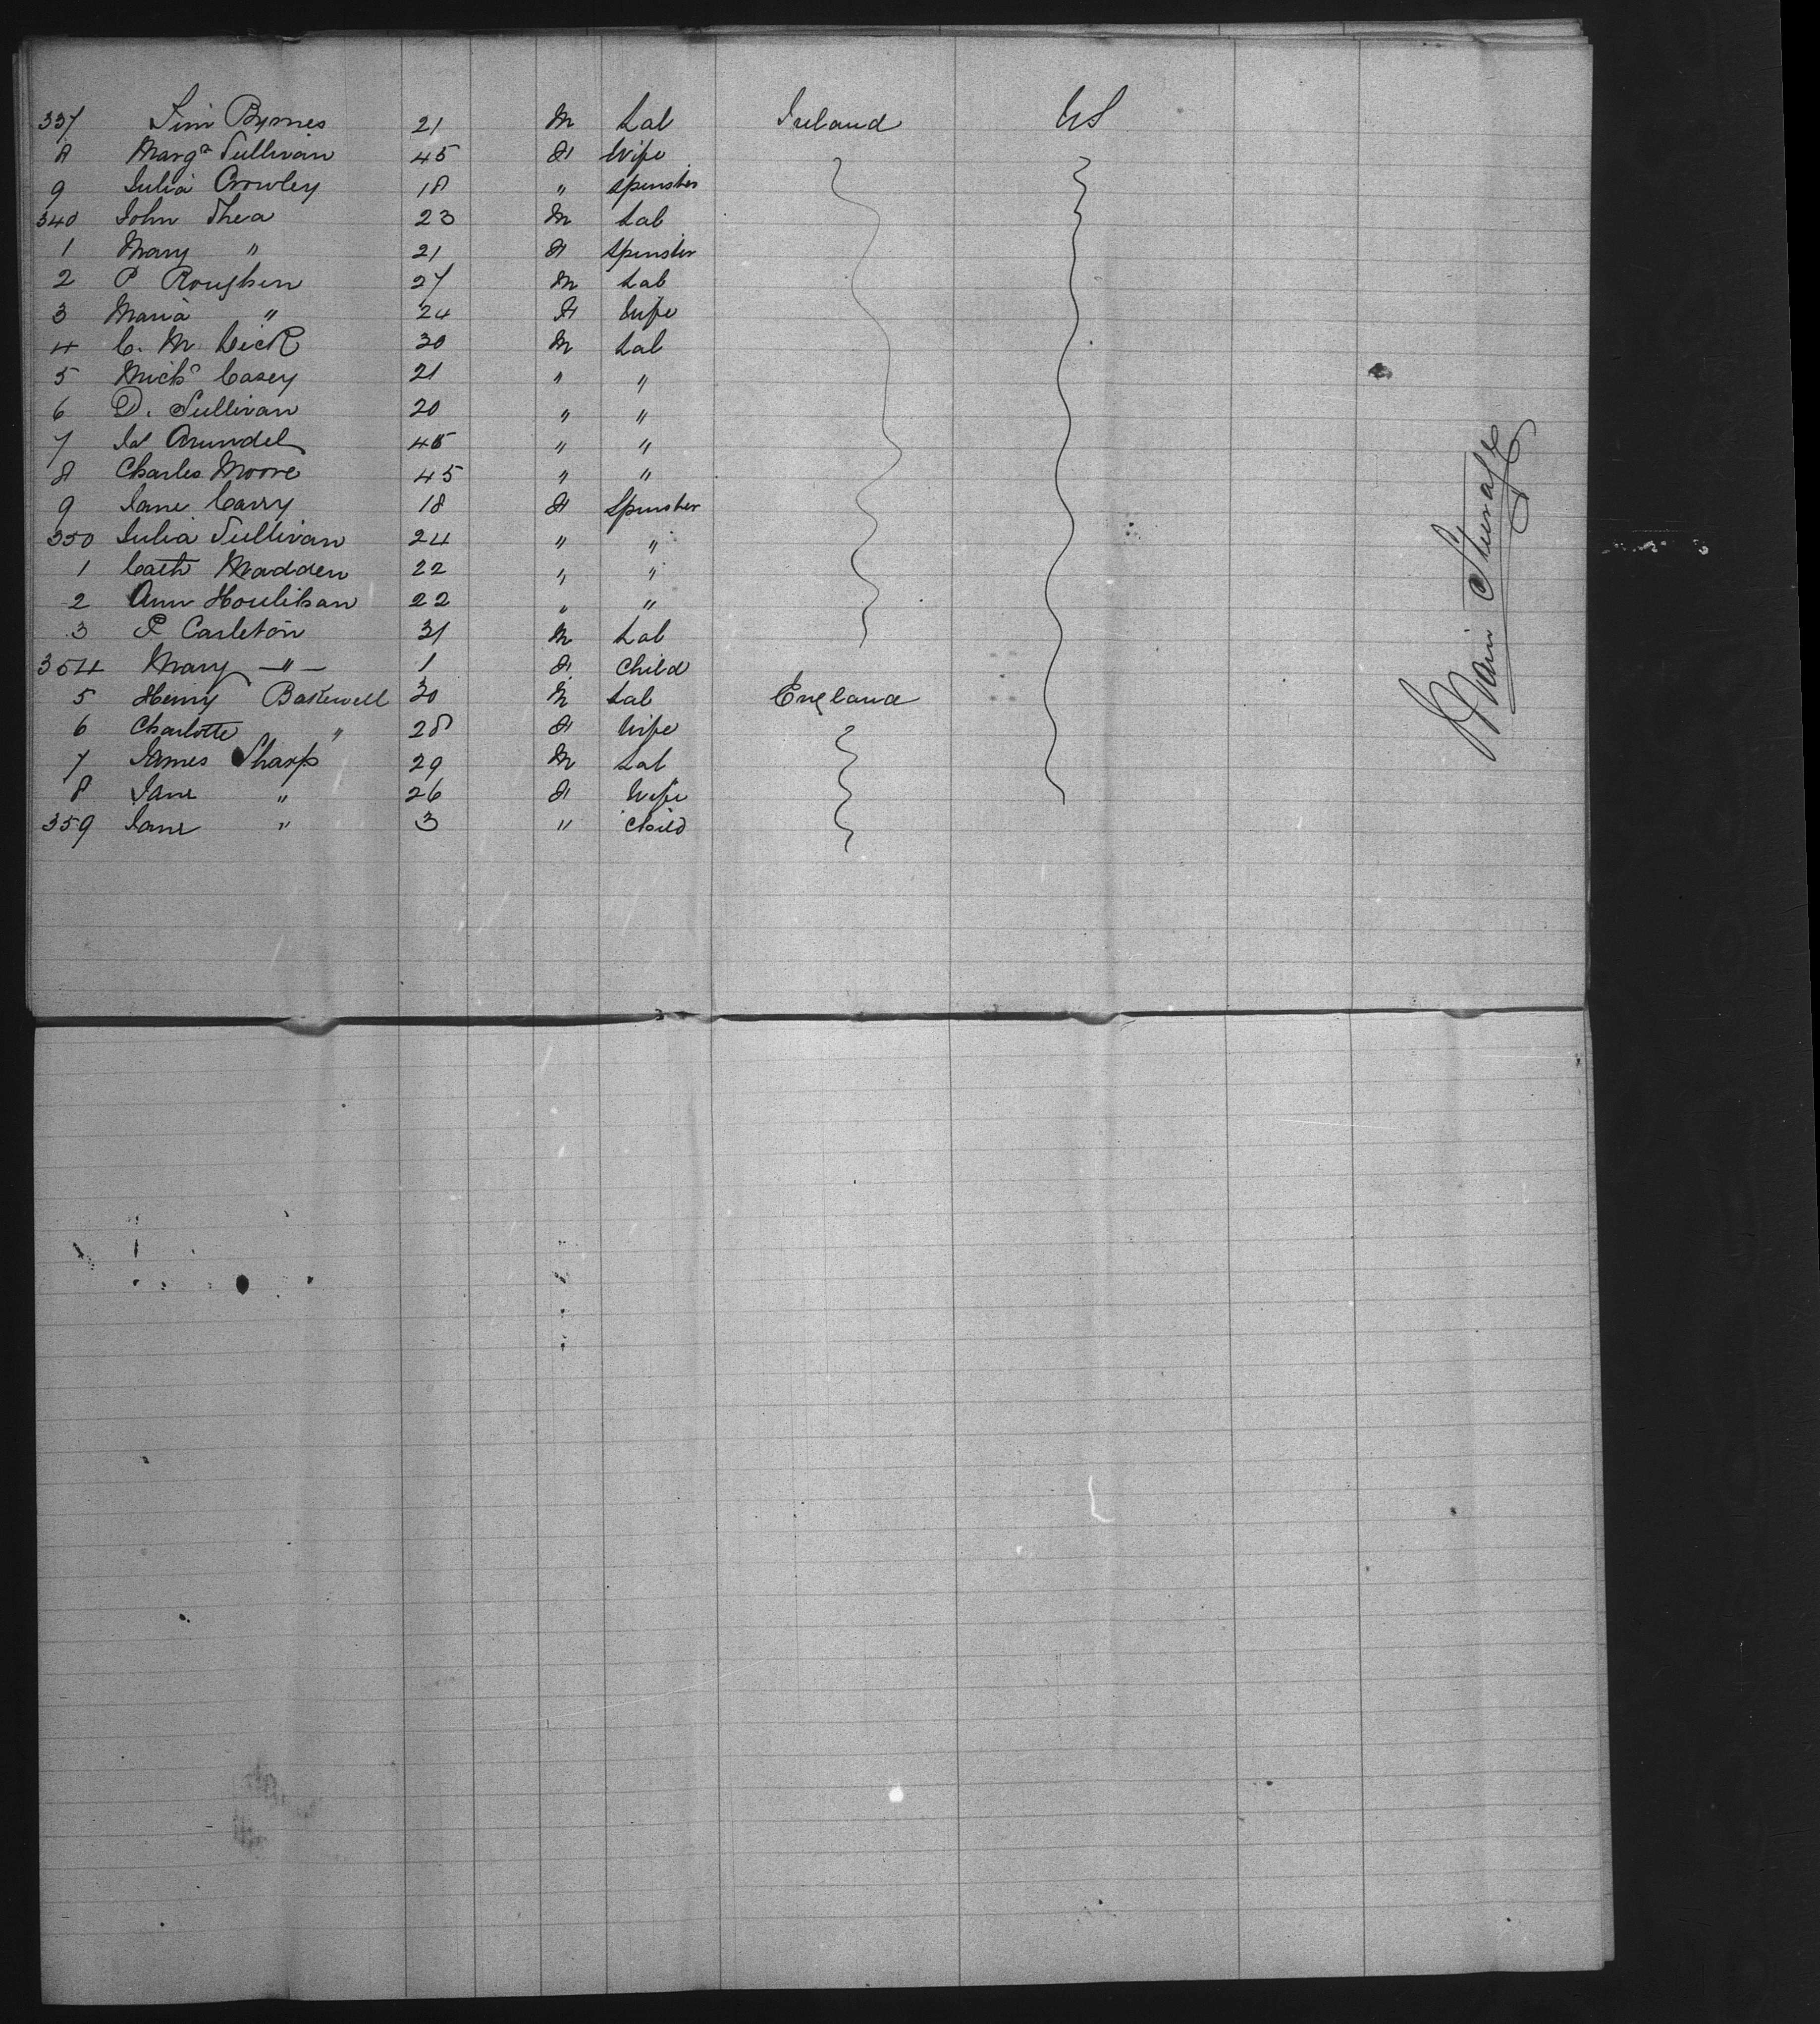 337 Tim Byrnes 21 M Lab Ireland US
8 Marg^a Sullivan 45 F Wife
9 Julia Crowley 18 " Spinster
340 John Shea 23 M Lab
1 Mary " 21 F Spinster
2 P Roughen 27 M Lab
3 Maria " 24 F Wife
4 C. M Dick 30 M Lab
5 Mich^l Casey 21 " "
6 D. Sullivan 20 " "
7 Arundel 45 " "
8 Charles Moore 45 " "
9 Jane Carry 18 F Spinster
350 Julia Sullivan 24 " "
1 Cath Madden 22 " "
2 Ann Houlihan 22 " "
3 P Carleton 31 M Lab
354 Mary — " — 1 F Child
5 Henry Bakewell 30 M Lab England
6 Charlotte " 28 F Wife
7 James Sharp 29 M Lab
8 Jane " 26 F Wife
359 Jane " 3 " Child